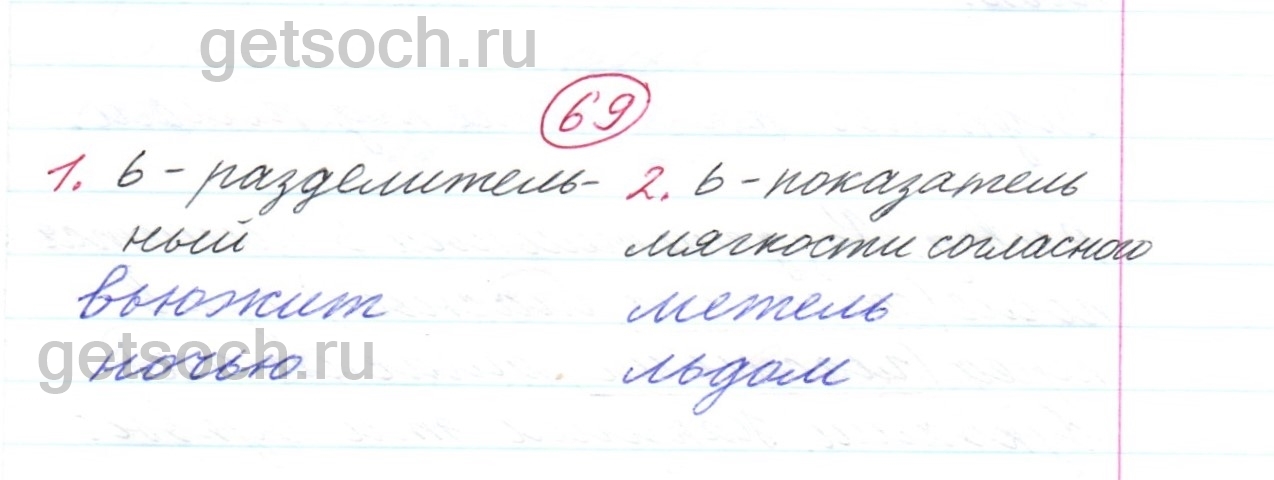 getsoch.ru
69
1. ь - разделитель-
ный
вьюжит
ночью
2. ь - показатель
мягкости согласного
метель
льдом
getsoch.ru